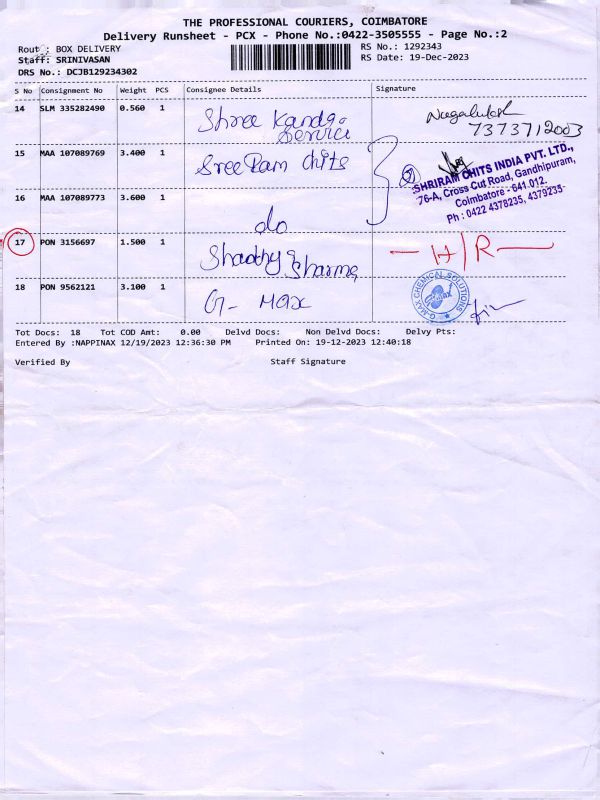 THE PROFESSIONAL COURIERS, COIMBATORE
Delivery Runsheet - PCX - Phone No.:0422-3505555 - Page No.:2
Route : BOX DELIVERY
Staff: SRINIVASAN
DRS No.: DCJB129234302
RS No.: 1292343
RS Date: 19-Dec-2023
S No Consignment No Weight PCS Consignee Details Signature
14 SLM 335282490 0.560 1 Shree
Service
7373712003
15 MAA 107089769 3.400 1 Sree Ram Chits
SHRIRAM CHITS INDIA PVT. LTD.,
76-A, Cross Cut Road, Gandhipuram,
Coimbatore - 641 012.
Ph : 0422 4378235, 4379235
16 MAA 107089773 3.600 1 do
17 PON 3156697 1.500 1 Sharma
H/R
18 PON 9562121 3.100 1 G- Max
G-MAX CHEMICAL SOLUTIONS
Tot Docs: 18 Tot COD Amt: 0.00 Delvd Docs: Non Delvd Docs: Delvy Pts:
Entered By :NAPPINAX 12/19/2023 12:36:30 PM Printed On: 19-12-2023 12:40:18
Verified By Staff Signature